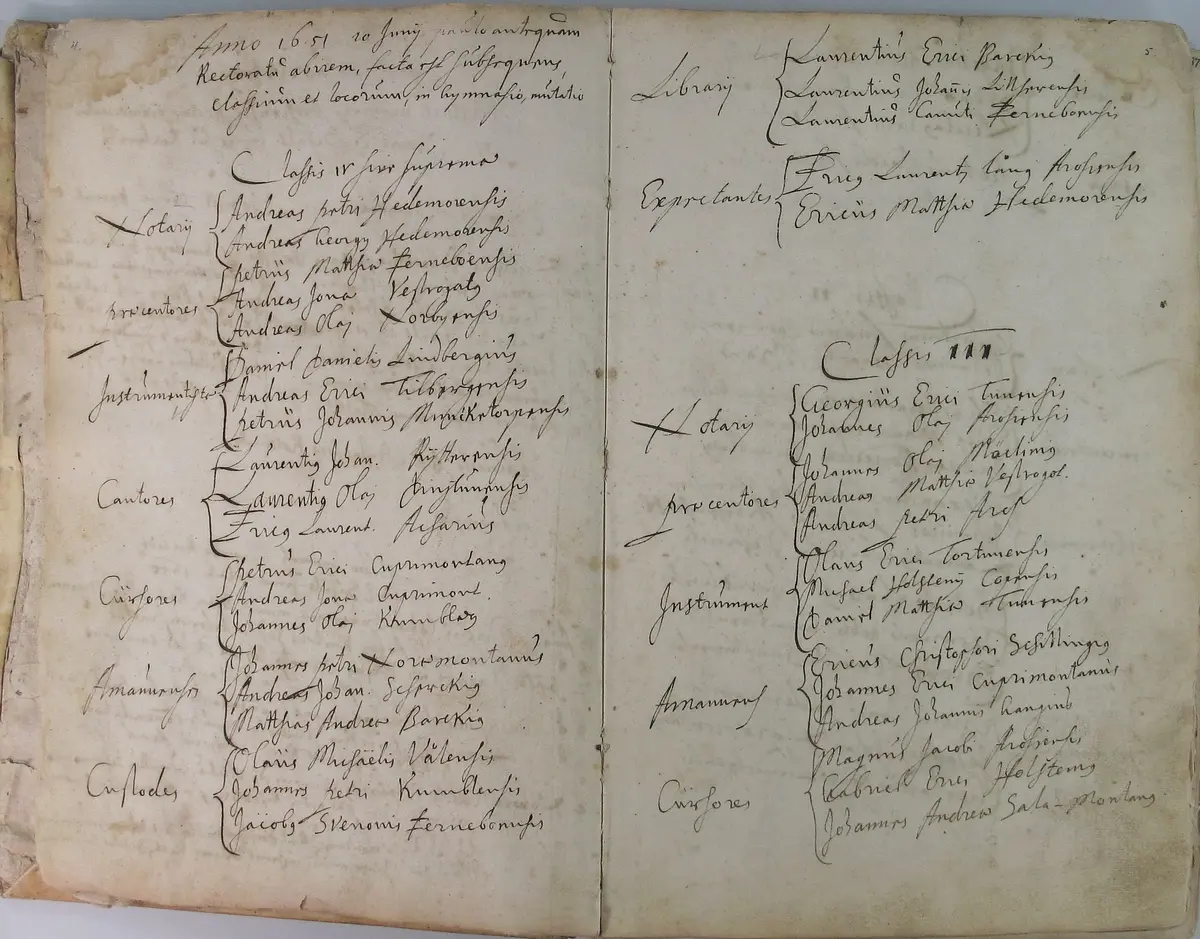 4.
Anno 1651 10 Junij paulo antequam
Rectoratū abirem, facta est subsequens,
classium et locorum, in Gymnasio, mutatio
Classis IV sive suprema
Notarij
Andreas Petri Hedemorensis
Andreas Georgij Hedemorensis
præcentores
Petrus Matthiæ Ferneboensis
Andreas Jonæ Vestrogoty
Andreas Olaj Norbyensis
Instrumentistæ
Daniel Danielis Lindbergius
Andreas Erici Tilbergensis
Petrus Johannis Muncketorpensis
Cantores
Laurentig Johan. Rytterensis
Laurentig Olaj
Ericg Laurent. Acharius
Cursores
Petrus Erici Cuprimontang
Andreas Jonæ Cuprimont.
Johannes Olaj Kumblæg
Amanuenses
Johannes Petri Noræmontanus
Andreas Johan. Scherckig
Matthias Andreæ Barckig
Custodes
Olaus Michaëlis Valensis
Johannes Petri Kumblensis
Jacobg Svenonis Fernebonensis
5.
Librarij
Laurentius Erici Barckig
Laurentius Johañis Littherensis
Laurentius Canuti Fernebonensis
Expectantes
Ericg Laurentij lång Arosiensis
Ericus Matthiæ Hedemorensis
Classis III
Notarij
Georgius Erici Tunensis
Johannes Olaj Arosiensis
præcentores
Johannes Olaj
Andreas Matthiæ Vestrogot.
Andreas Petri Aros
Instrument
Olaus Erici Tortunensis
Michael Holstenij Copensis
Daniel Matthiæ Tunensis
Amanuens
Ericus Christophori Schillingig
Johannes Erici Cuprimontanus
Andreas Johannis
Cursores
Magnus Jacobi Arosiensis
Gabriel Erici Holstenig
Johannes Andreæ Sala-Montang